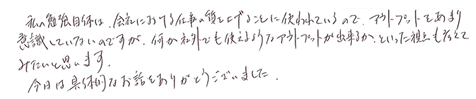 私の勉強自体は、会社における仕事の質を上げることに使われているので、アウトプットをあまり
意識していないのですが、何か社外でも使えるようなアウトプットが出来るか、といった視点も考えて
みたいと思います。
今日は具体的なお話をありがとうございました。